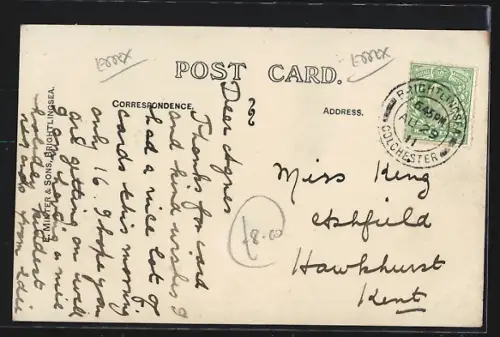 Essex
Essex
POST CARD.
CORRESPONDENCE.
ADDRESS.
E. MINTER & SONS, BRIGHTLINGSEA.
BRIGHTLINGSEA
6.45 PM
AU 29
11
COLCHESTER
Dear Agnes
Thanks for card
and kind wishes I
had a nice lot of
cards this morning
only 16. I hope you
are getting on well
& having a nice
holiday kindest
from
Miss King
Ashfield
Hawkhurst
Kent
£8.00